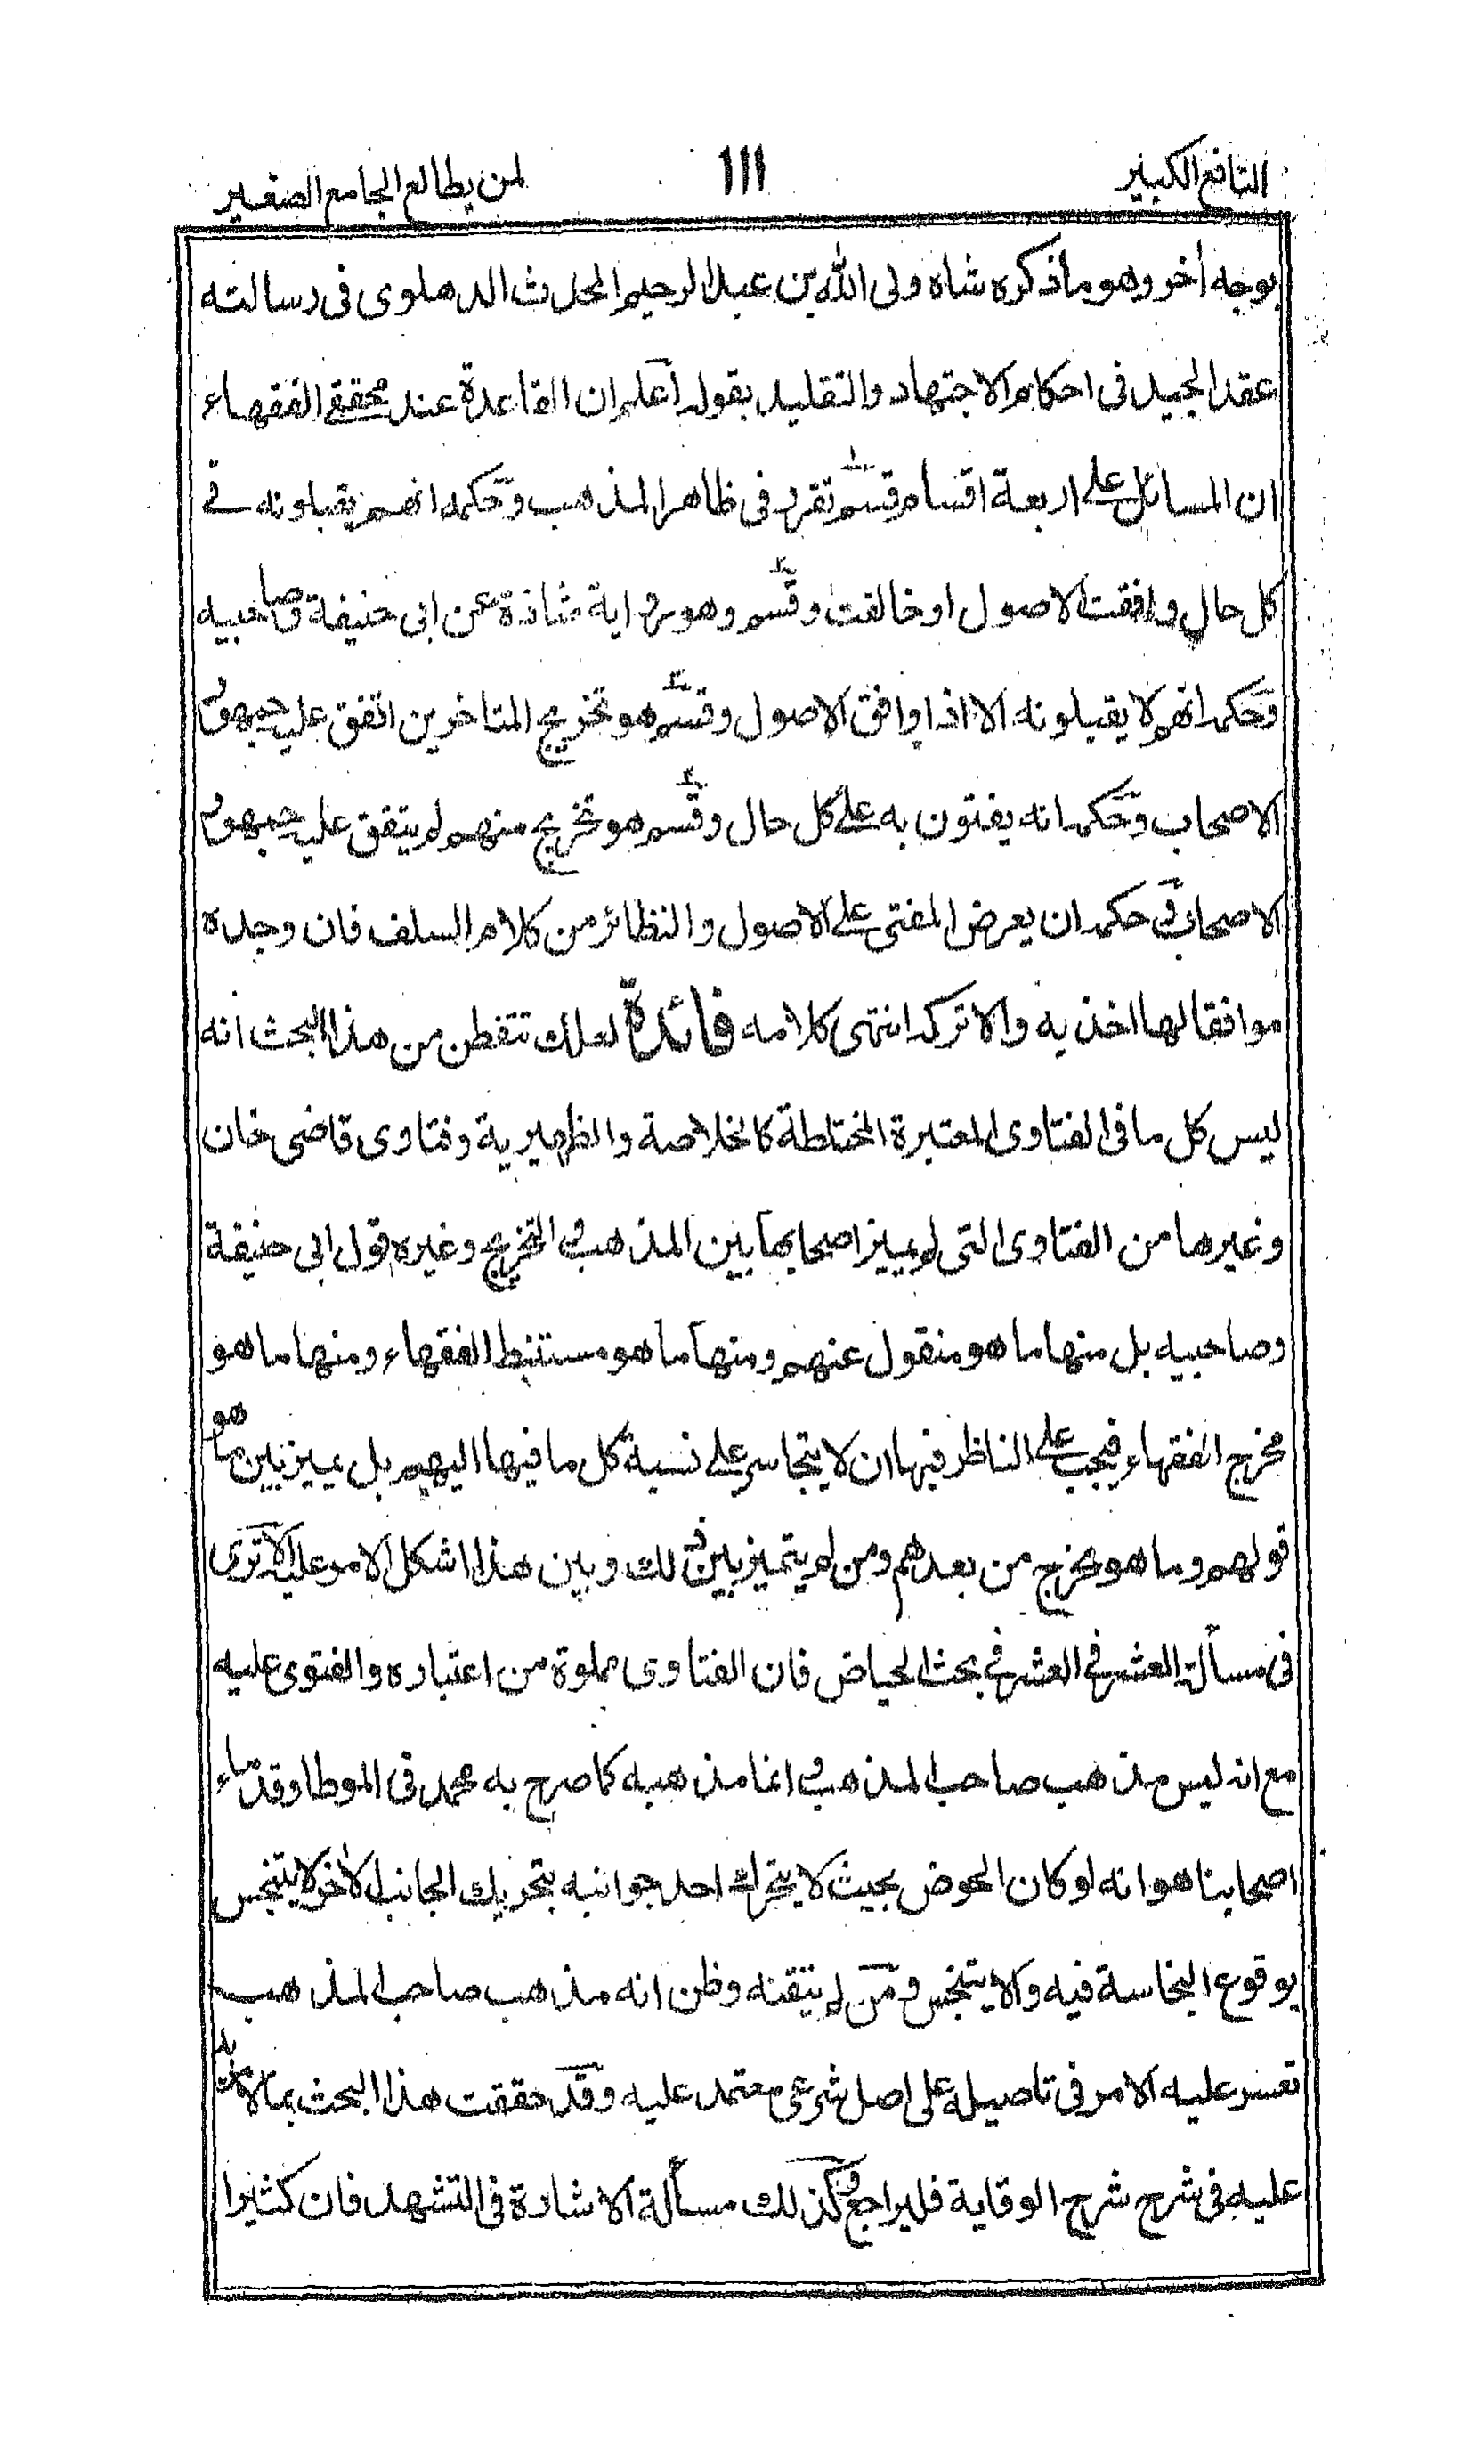 النافع الكبير
١١١
لمن يطالع الجامع الصغير
بوجه أخر وهو ما ذكره شاه ولى الله بن عبد الرحيم المحدث الدهلوى فى رسالته
عقد الجيد فى احكام الاجتهاد والتقليد بقوله أعلم ان القاعدة عند محققے الفقهاء
ان المسائل علے اربعة اقسام قسم تقرر فى ظاهر المذهب وحكمه انهم يقبلونه فے
كل حال وافقت الاصول او خالفت وقسم وهو رواية شاذة عن ابى حنيفة وصاحبيه
وحكمه انهم لا يقبلونه الا اذا وافق الاصول وقسم هو تخريج المتاخرين اتفق عليه جمهور
الاصحاب وحكمه انه يفتون به علے كل حال وقسم هو تخريج منهم لم يتفق عليه جمهور
الاصحاب وحكمه ان يعرض المفتى علے الاصول والنظائر من كلام السلف فان وجده
موافقا لها اخذ به والا تركه انتهى كلامه فائدة لعلك تتفطن من هذا البحث انه
ليس كل ما فى الفتاوى المعتبرة المختلطة كالخلاصة والظهيرية وفتاوى قاضى خان
وغيرها من الفتاوى التى لم يميز اصحابها بين المذهب والتخريج وغيره قول ابى حنيفة
وصاحبيه بل منها ما هو منقول عنهم ومنها ما هو مستنبط الفقهاء ومنها ما هو
مخرج الفقهاء فيجب علے الناظر فيها ان لا يتجاسر علے نسبة كل ما فيها اليهم بل يميز بين ما هو
قولهم وما هو مخرج من بعدهم ومن لم يتميز بين ذلك وبين هذا اشكل الامر عليه الا ترى
فى مسألة العشر فے العشر فے بحث الحياض فان الفتاوى مملوة من اعتباره والفتوى عليه
مع انه ليس مذهب صاحب المذهب وانما مذهبه كما صرح به محمد فى الموطا وقدماء
اصحابنا هو انه لو كان الحوض بحيث لا يتحرك احد جوانبه بتحريك الجانب الأخر لا يتنجس
بوقوع النجاسة فيه والا يتنجس ومن لم يتقنه وظن انه مذهب صاحب المذهب
تعسر عليه الامر فى تاصيله على اصل شرعى معتمد عليه وقد حققت هذا البحث بما لا مزيد
عليه فى شرح شرح الوقاية فليراجع وكذلك مسألة الاشارة فى التشهد فان كثيرا